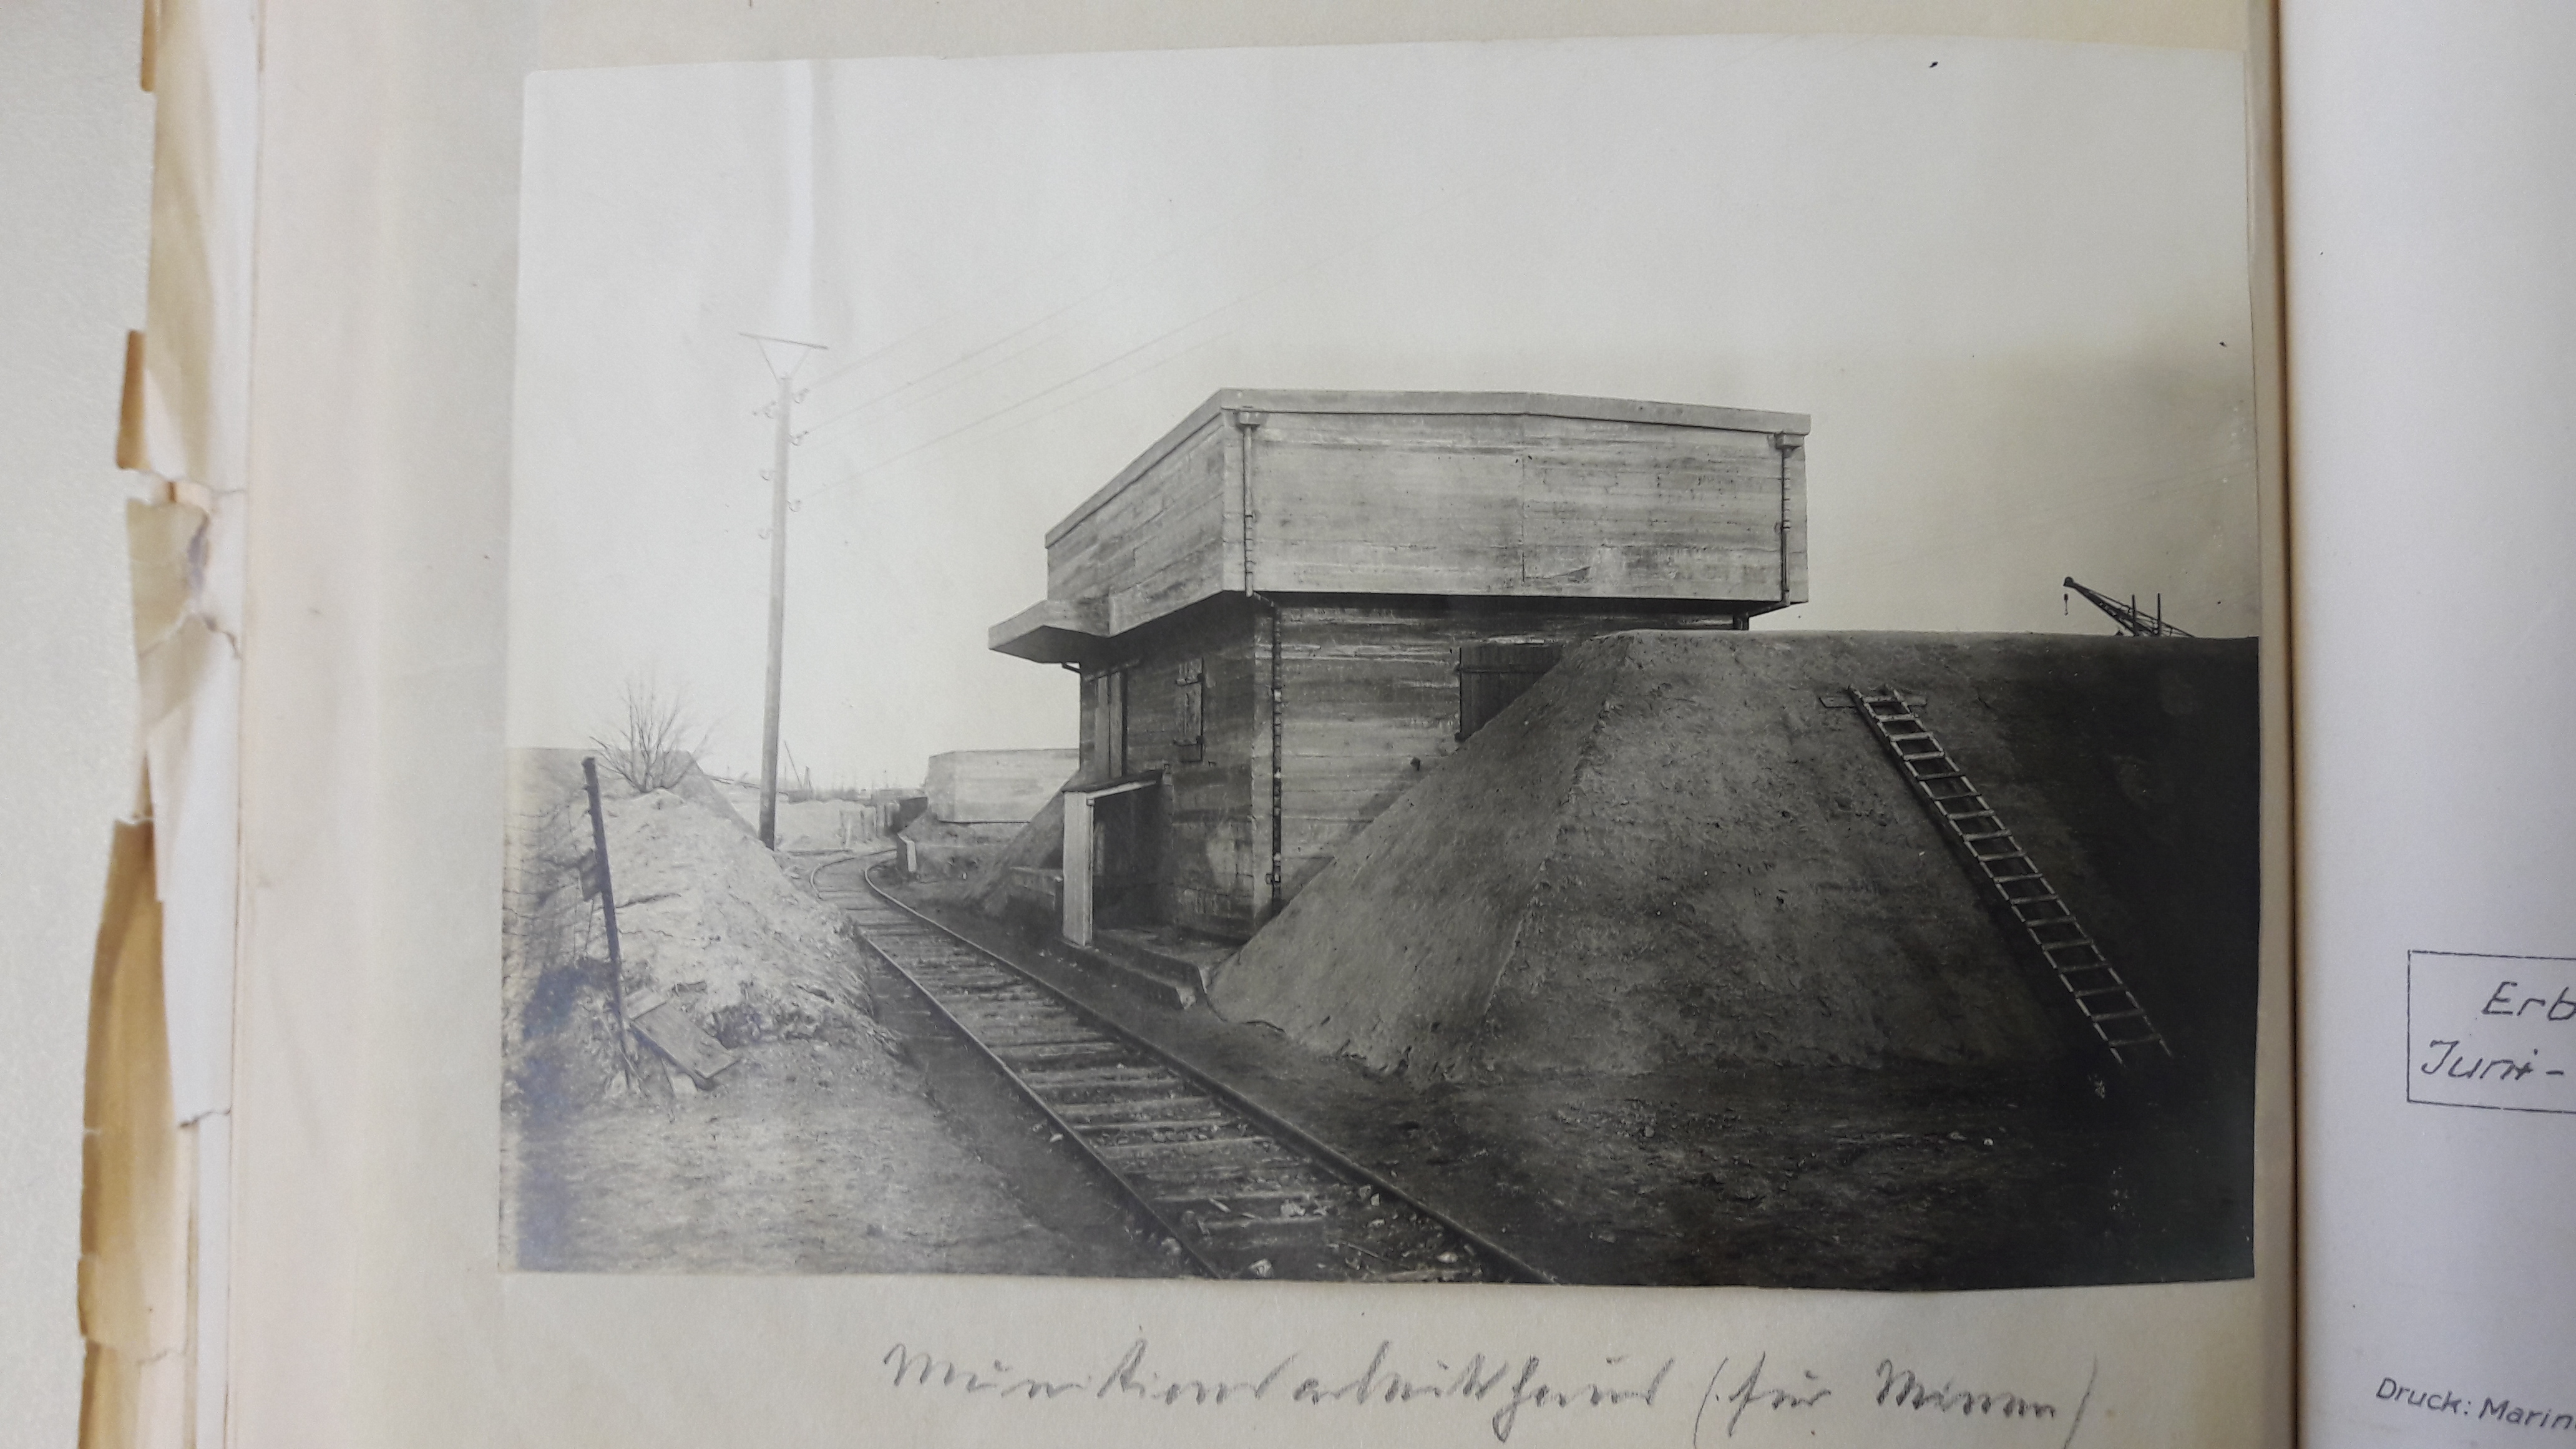 Munitionsarbeitshaus (für Minen)
Erb
Juni-
Druck: Marin